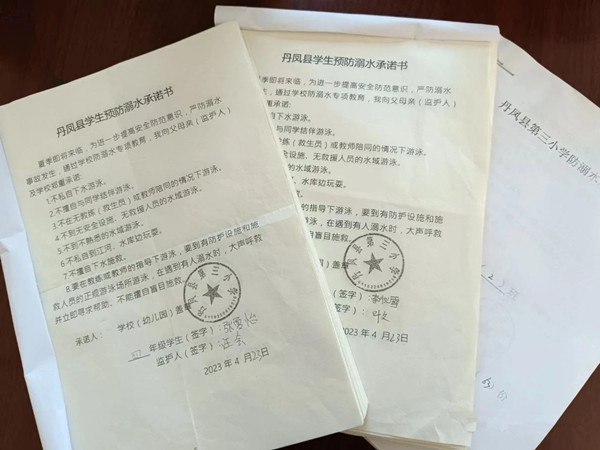 丹凤县学生预防溺水承诺书
夏季即将来临，为进一步提高安全防范意识，严防溺水
事故发生，通过学校防溺水专项教育，我向父母亲（监护人）
及学校郑重承诺：
1.不私自下水游泳。
2.不擅自与同学结伴游泳。
3.不在无教练（救生员）或教师陪同的情况下游泳。
4.不到无安全设施、无救援人员的水域游泳。
5.不到不熟悉的水域游泳。
6.不私自到江河、水库边玩耍。
7.不擅自下水施救。
8.要在教练或教师的指导下游泳，要到有防护设施和施
救人员的正规游泳场所游泳，在遇到有人溺水时，大声呼救
并立即寻求帮助，不能擅自盲目施救。
承诺人：
学校（幼儿园）盖章
四 年级学生（签字）：
监护人（签字）：
2023 年 4 月 23日
丹凤县第三小学
丹凤县学生预防溺水承诺书
夏季即将来临，为进一步提高安全防范意识，严防溺水
发生，通过学校防溺水专项教育，我向父母亲（监护人）
承诺：
自下水游泳。
与同学结伴游泳。
教练（救生员）或教师陪同的情况下游泳。
全设施、无救援人员的水域游泳。
的水域游泳。
、水库边玩耍。
救。
的指导下游泳，要到有防护设施和施
游泳，在遇到有人溺水时，大声呼救
自盲目施救。
）盖章
（签字）：
签字）：
2023 年 4 月 23日
丹凤县第三小学
丹凤县第三小学防溺水